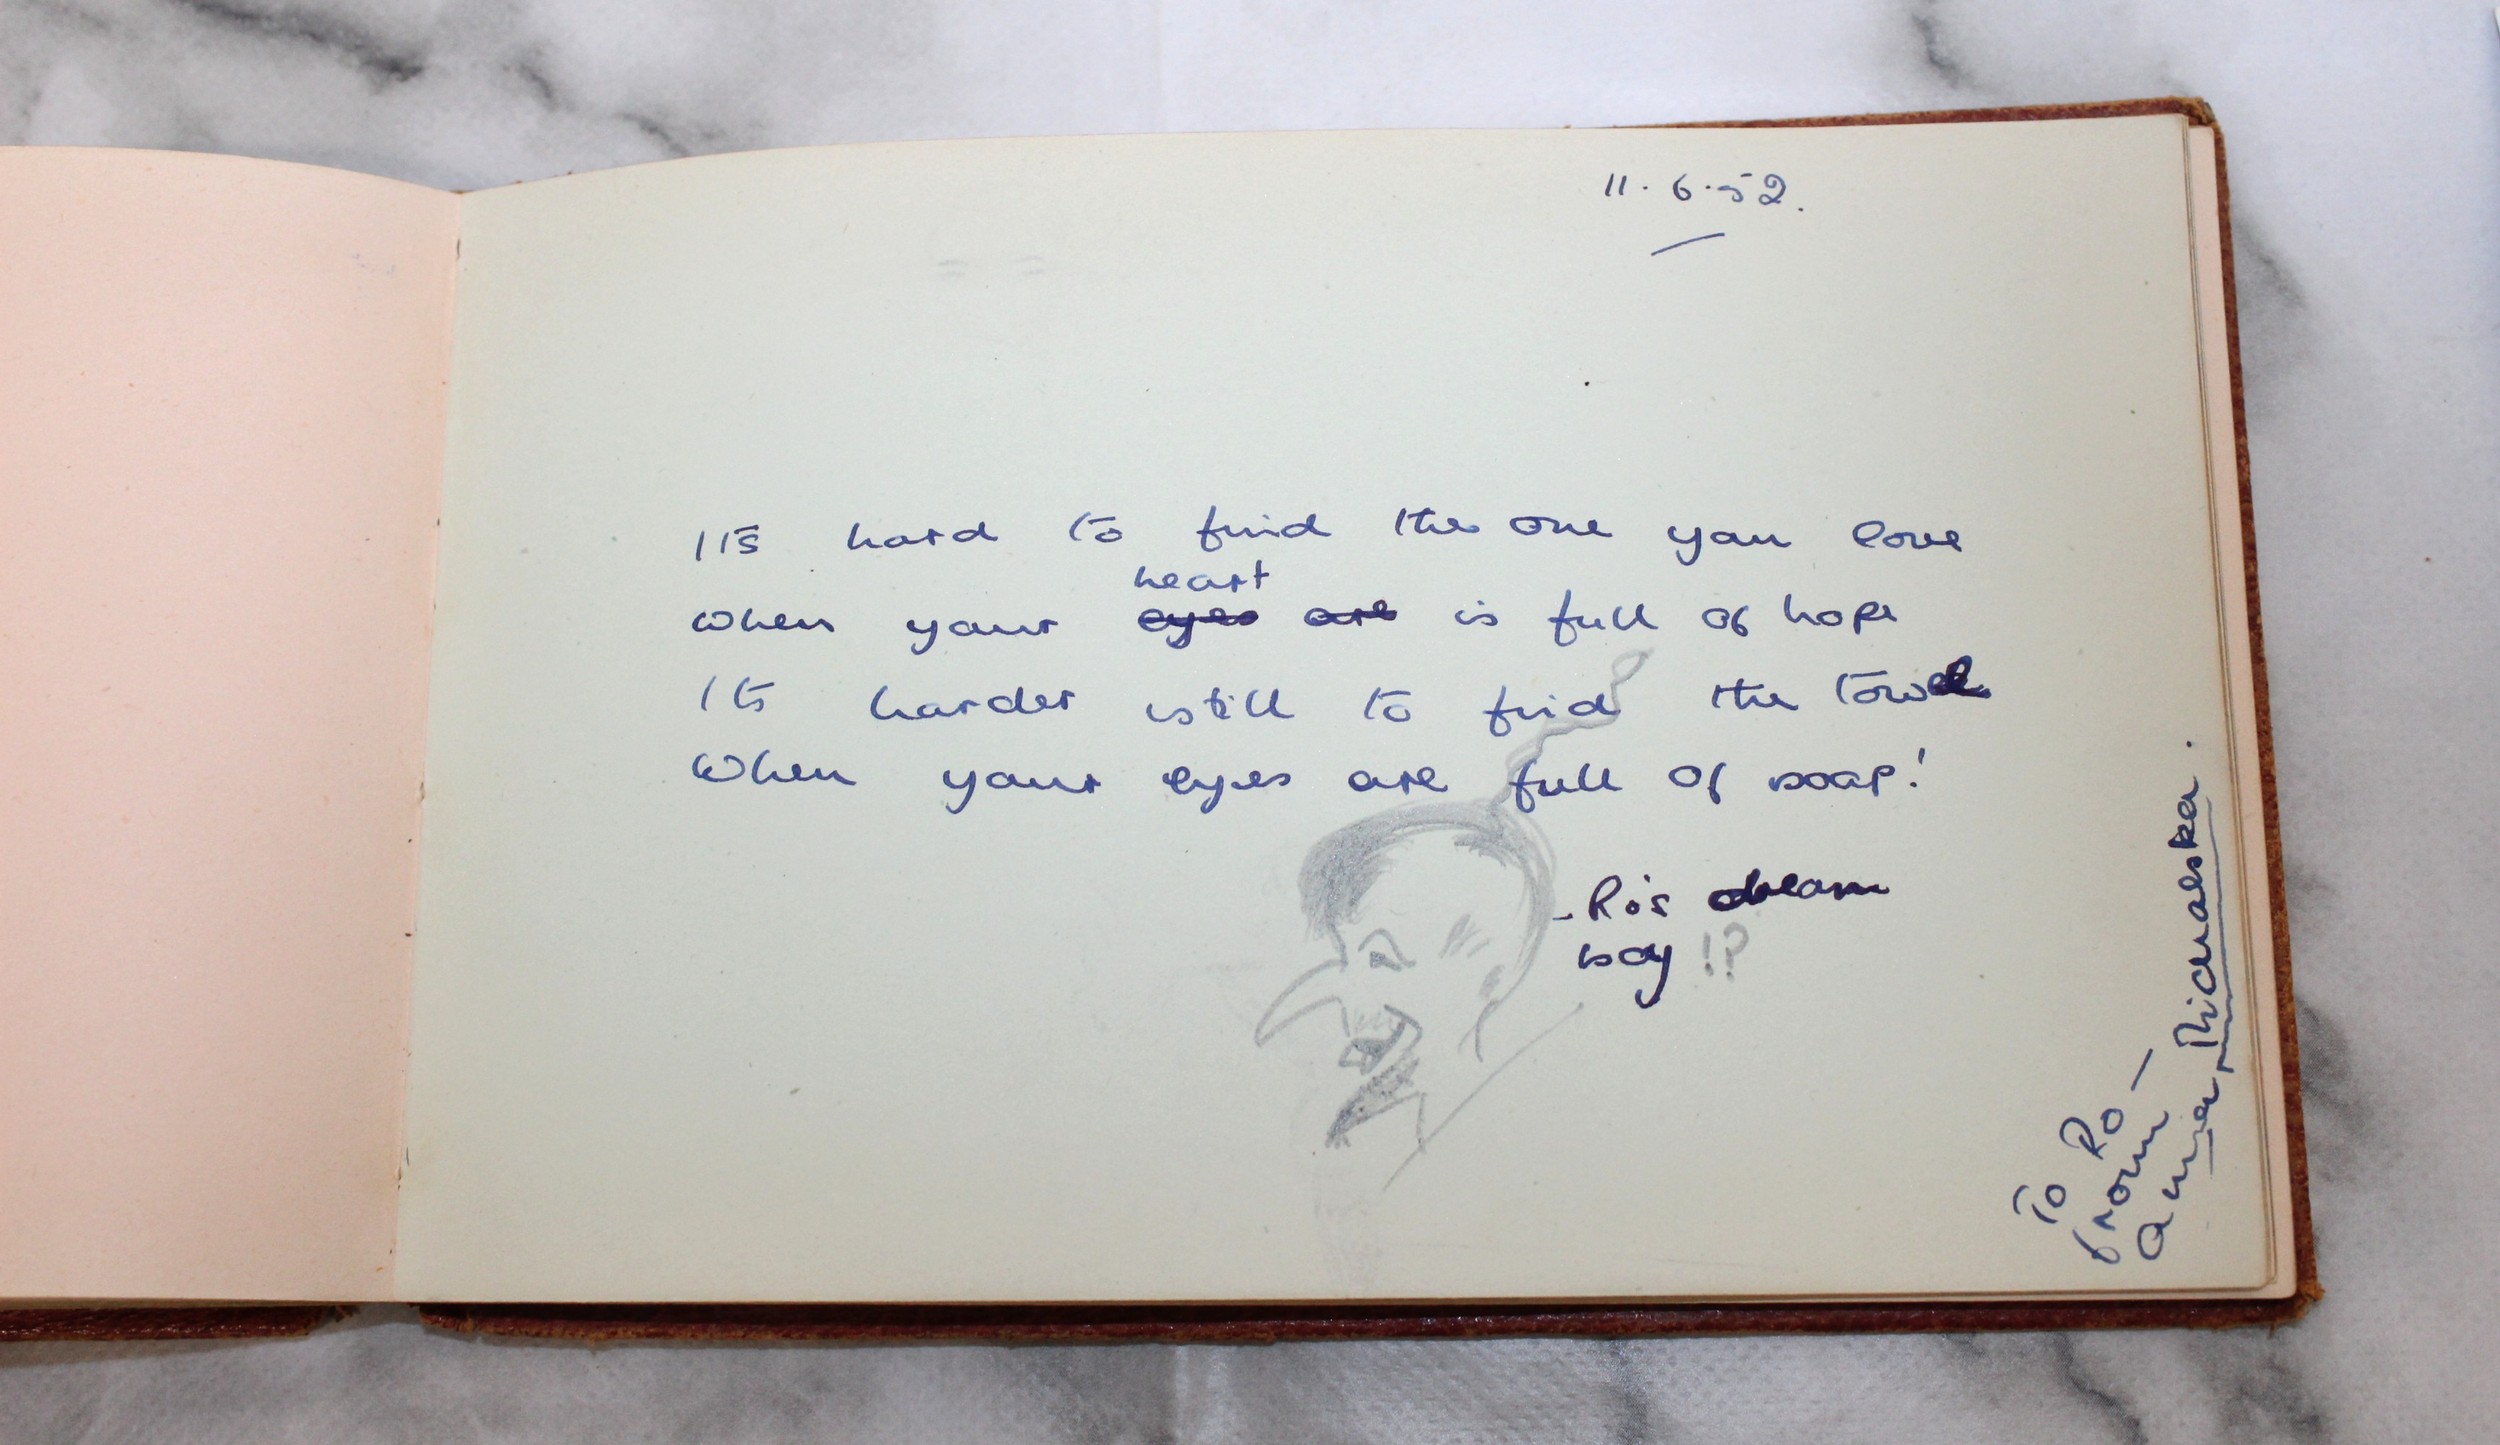 11.6.52.
Its hard to find the one you love
heart
when your eyes are is full of hope
Its harder still to find the towel
When your eyes are full of soap!
- Ro's dream
boy !?
To Ro
from —